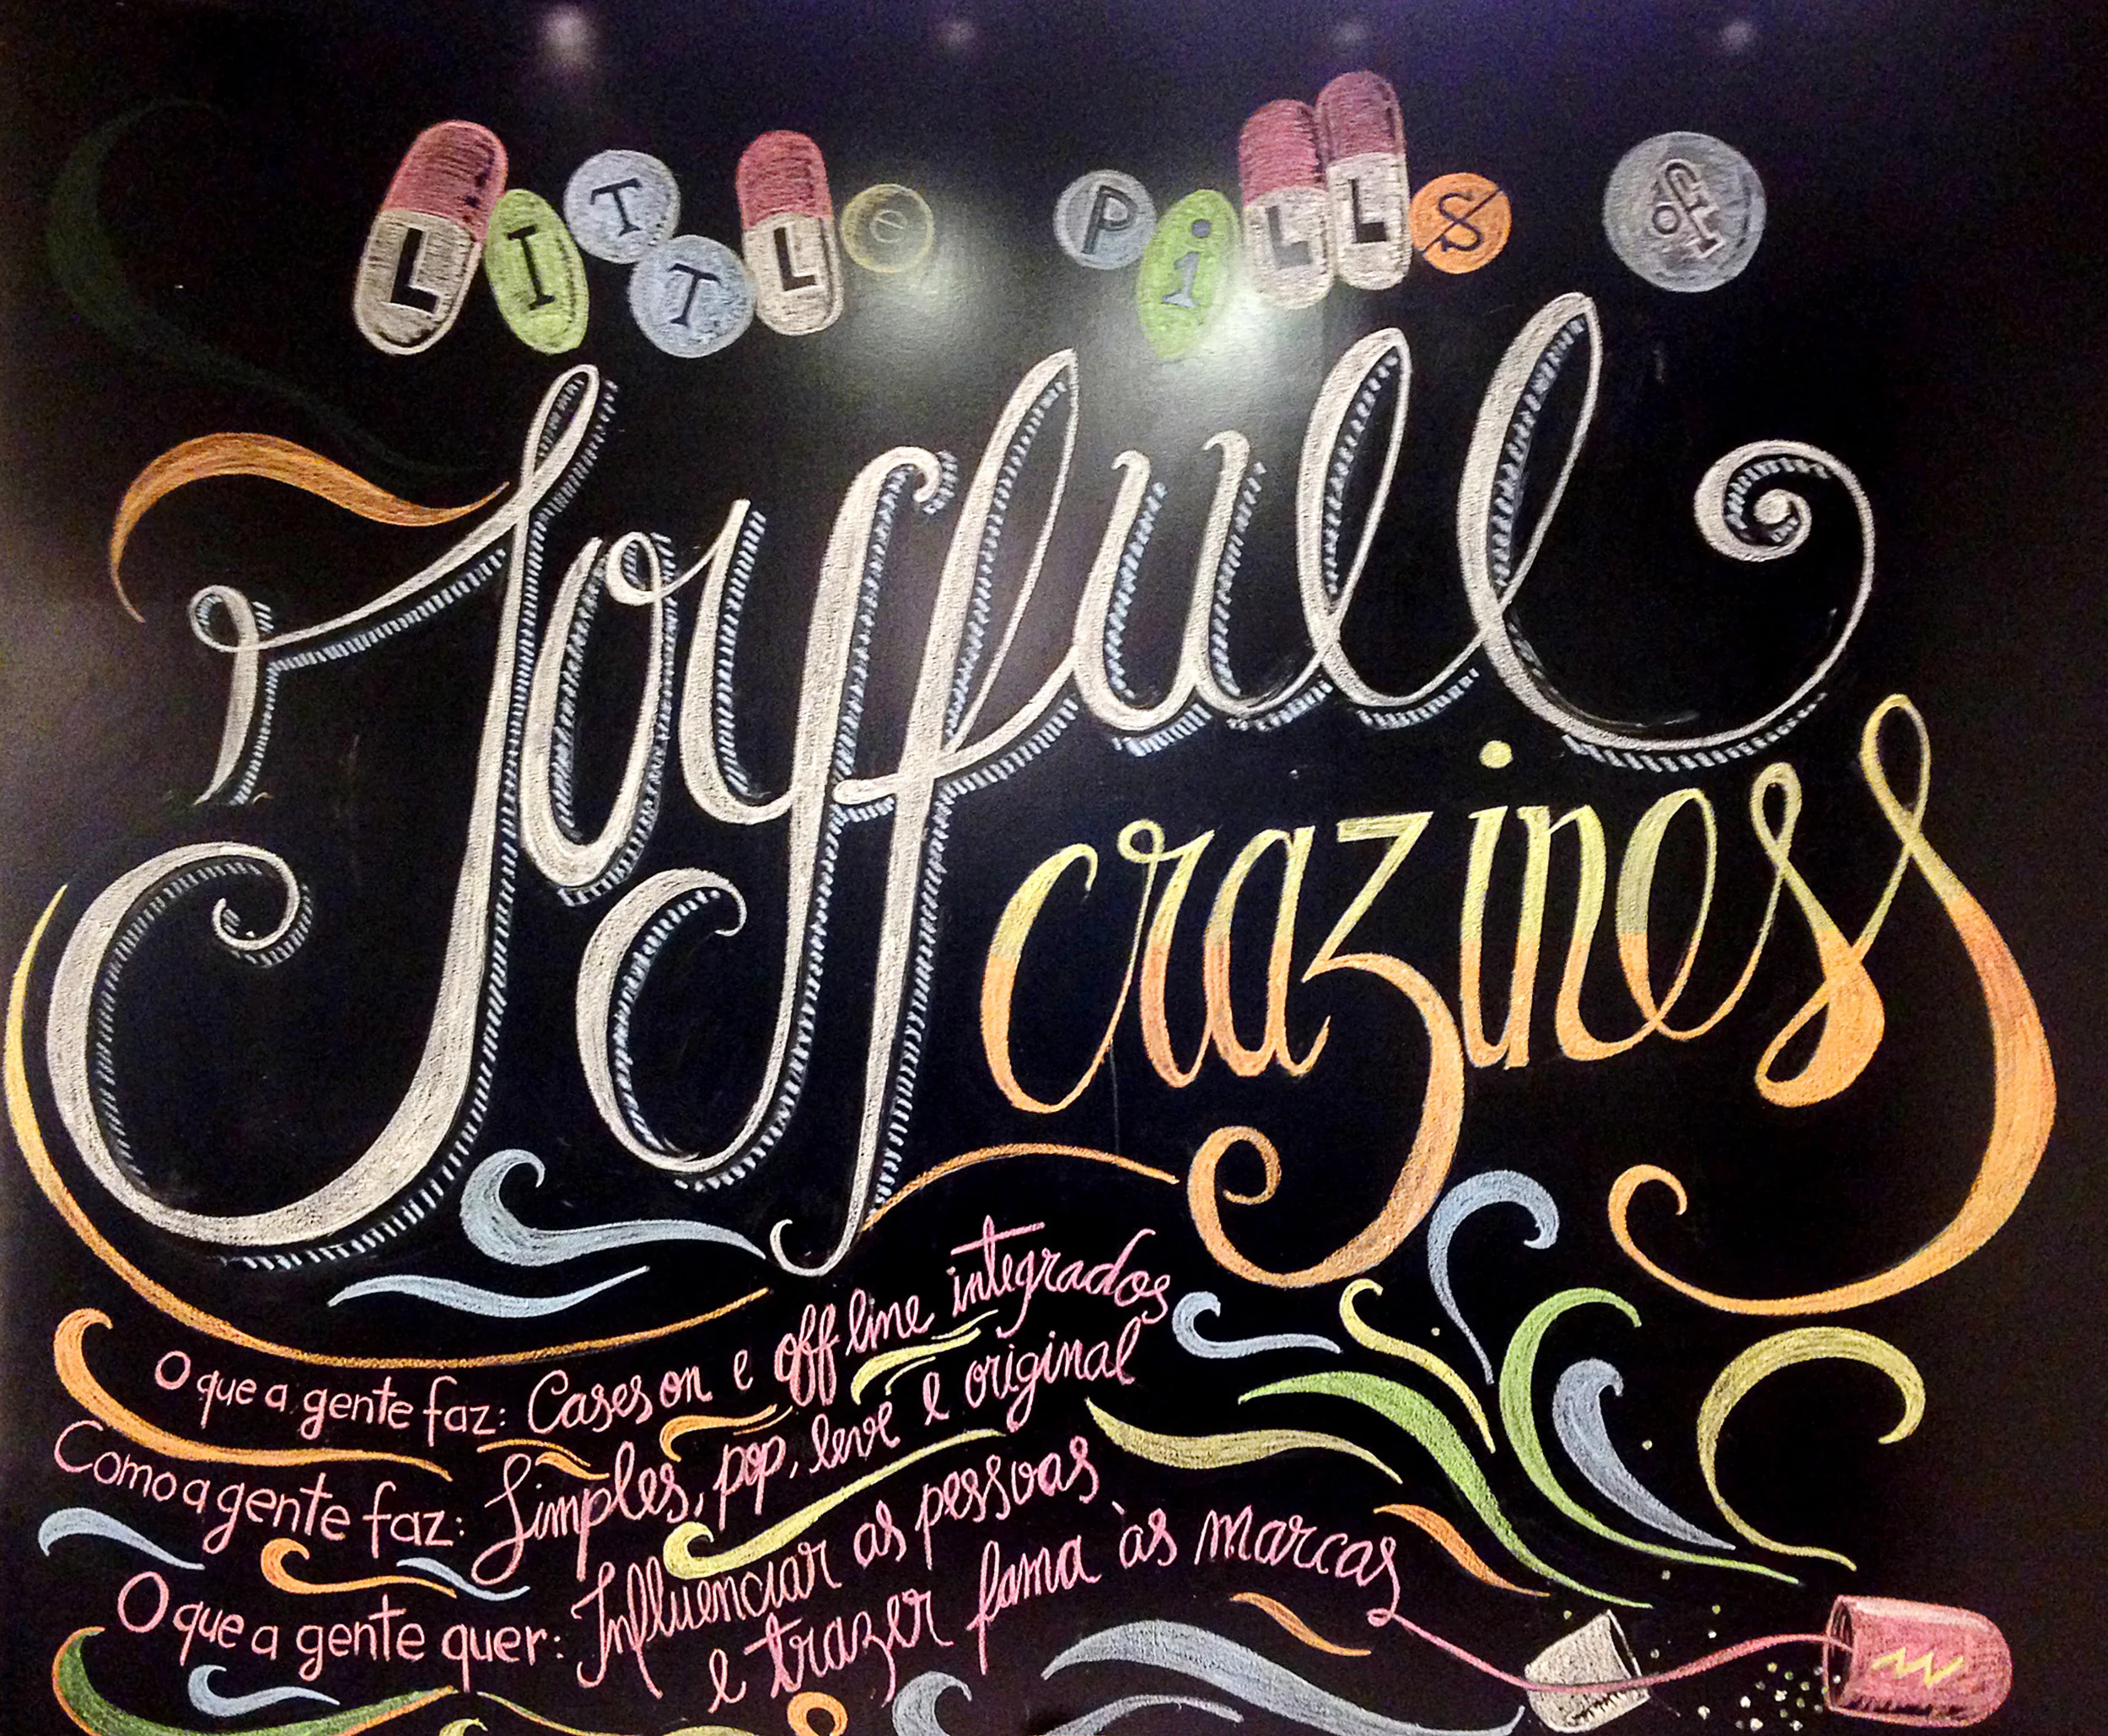 LITTLe PiLLS of
Joyfull
craziness
O que a gente faz: Cases on e off line integrados
Como a gente faz: Simples, pop, leve e original
O que a gente quer: Influenciar as pessoas
e trazer fama às marcas